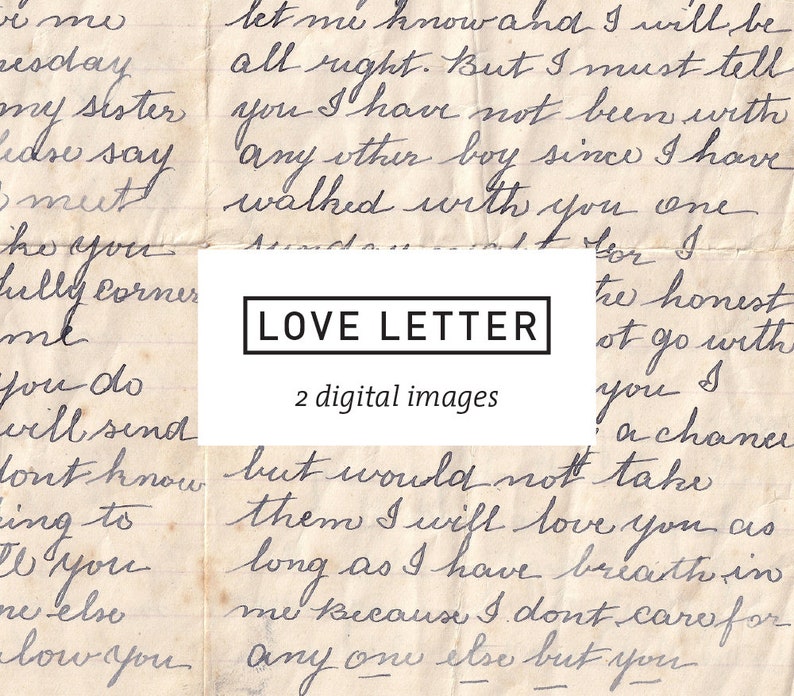 ve me
esday
my sister
lease say
meet
ike you
fully corner
me
you do
will send
dont know
king to
ll you
ne else
low you
let me know and I will be
all right. But I must tell
you I have not been with
any other boy since I have
walked with you one
sunday night for I
the honest
not go with
you I
a chance
but would not take
them I will love you as
long as I have breath in
me Because I dont care for
any one else but you
LOVE LETTER
2 digital images